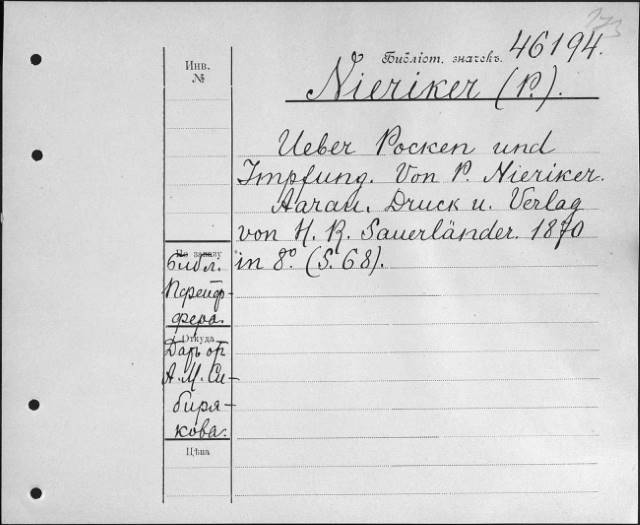 Библіот. значекъ. 46194.
Инв.
№
Nieriker (P.).
Ueber Pocken und
Impfung. Von P. Nieriker.
Aarau. Druck u. Verlag
von H. R. Sauerländer. 1870
in 8º. (S. 68).
По заказу
библ.
Пфейф-
фера.
Откуда
Даръ от
А. М. Си-
биря-
кова.
Цѣна